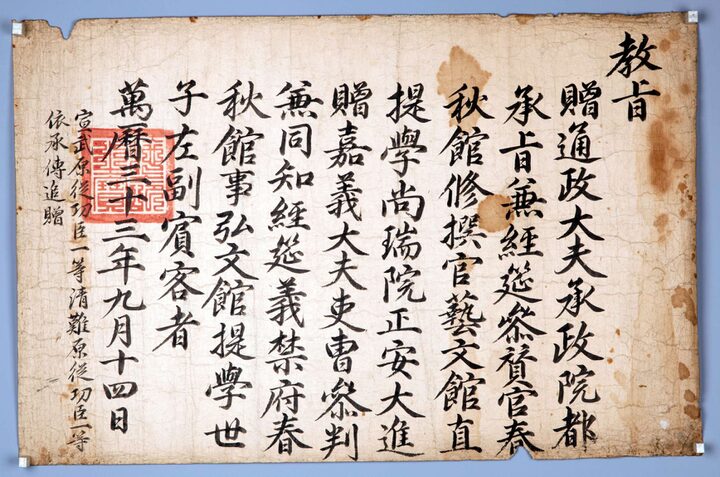 教旨
贈通政大夫承政院都
承旨兼經筵叅贊官春
秋館修撰官藝文館直
提學尚瑞院正安大進
贈嘉義大夫吏曹叅判
兼同知經筵義禁府春
秋館事弘文館提學世
子左副賓客者
萬曆三十三年九月十四日
宣武原從功臣一等清難原從功臣一等
依承傳追贈